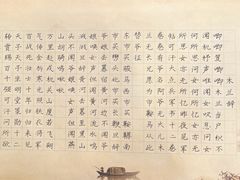 木兰辞
唧唧复唧唧木兰当户织不
闻机杼声唯闻女叹息问女
何所思问女何所忆女亦无
所思女亦无所忆昨夜见军
帖可汗大点兵军书十二卷
卷卷有爷名阿爷无大儿木
兰无长兄愿为市鞍马从此
替爷征
东市买骏马西市买鞍鞯南
市买辔头北市买长鞭旦辞
爷娘去暮宿黄河边不闻爷
娘唤女声但闻黄河流水鸣
溅溅旦辞黄河去暮至黑山
头不闻爷娘唤女声但闻燕
山胡骑鸣啾啾
万里赴戎机关山度若飞朔
气传金柝寒光照铁衣将军
百战死壮士十年归归来见
天子天子坐明堂策勋十二
转赏赐百千强可汗问所欲